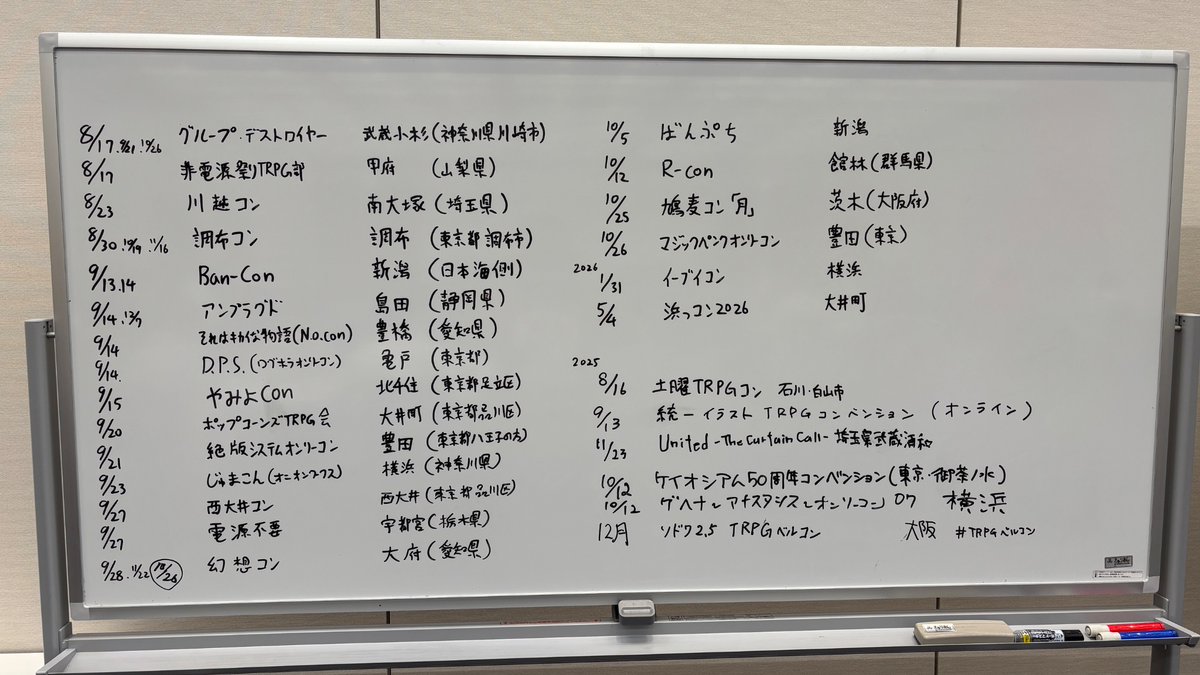 8/17. 9/21. 12/26 グループ・デストロイヤー 武蔵小杉(神奈川県川崎市)
8/17 非電源祭りTRPG部 甲府 (山梨県)
8/23 川越コン 南大塚 (埼玉県)
8/30. 11/16 調布コン 調布 (東京都調布市)
9/13.14 Ban-Con 新潟 (日本海側)
9/14. アンプラグド 島田 (静岡県)
9/14 それはキカイな物語(N.o.con) 豊橋 (愛知県)
9/14. D.P.S.(ログホラオンリーコン) 亀戸 (東京都)
9/15 やみよCon 北千住 (東京都足立区)
9/20 ポップコーンズTRPG会 大井町 (東京都品川区)
9/21 絶版システムオンリーコン 豊田 (東京都八王子の方)
9/23 じゅまこん(オニオンワークス) 横浜 (神奈川県)
9/27 西大井コン 西大井 (東京都品川区)
9/27 電源不要 宇都宮(栃木県)
9/28. 11/22 幻想コン 大府(愛知県)
10/5 ばんぷち 新潟
10/12 R-con 館林(群馬県)
10/25 鳩麦コン「月」 茨木(大阪府)
10/26 マジックペンクオンリーコン 豊田(東京)
2026
1/31 イーブイコン 横浜
5/4 浜っコン2026 大井町
2025
8/16 土曜TRPGコン 石川・白山市
9/13 統一イラストTRPGコンベンション (オンライン)
11/23 United -The Curtain Call- 埼玉県武蔵浦和
10/12 ケイオシアム50周年コンベンション(東京・御茶ノ水)
10/12 ゲヘナ〜アナスタシス〜オンリーコン 07 横浜
12月 ソドワ2.5 TRPGベルコン 大阪 #TRPGベルコン